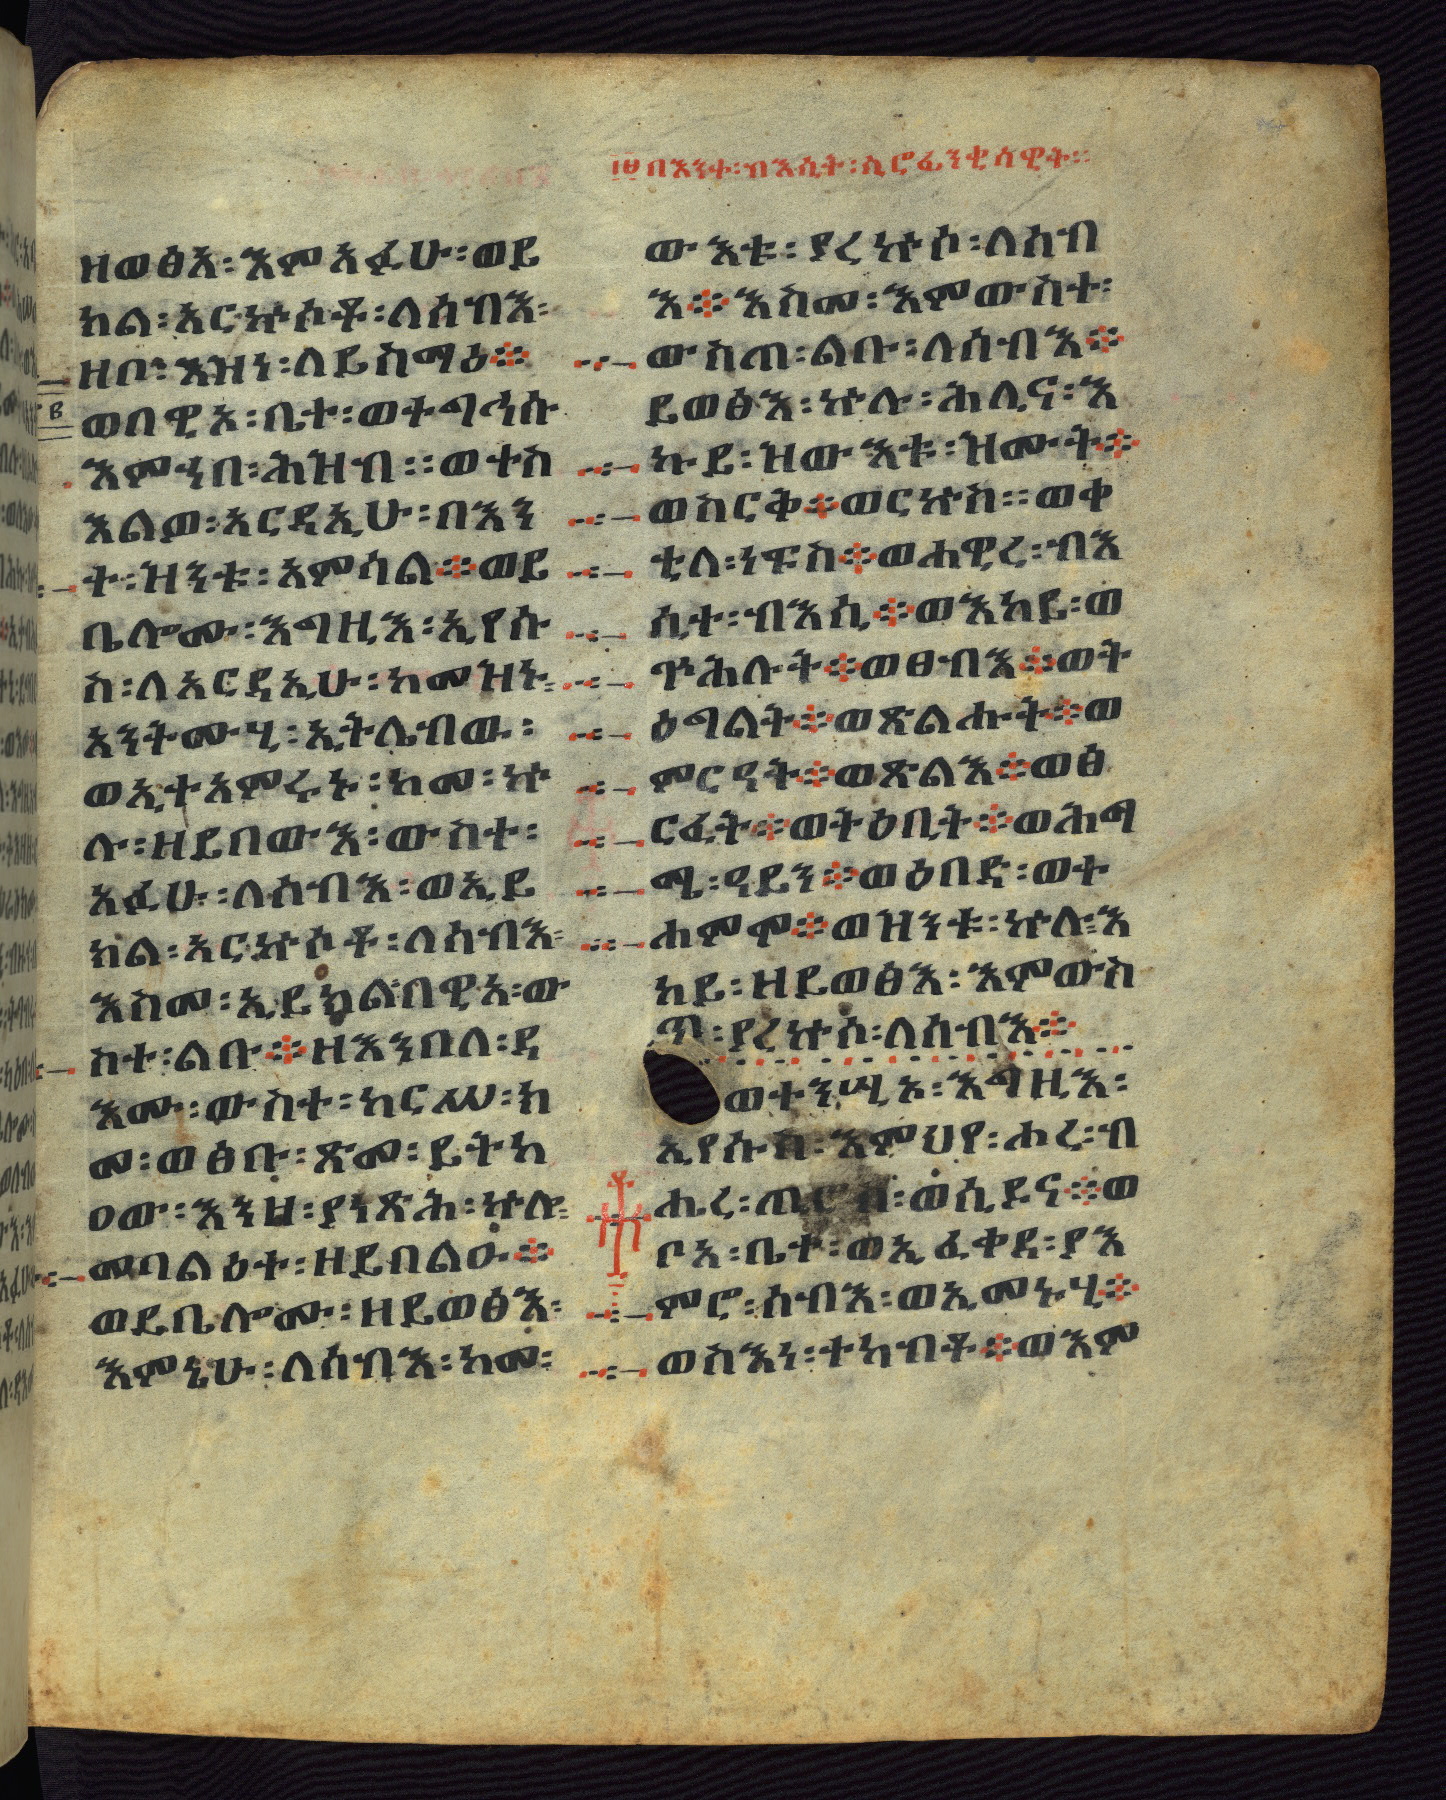 ፲፱በእንተ፡ብእሲት፡ሲሮፊንቂሳዊት።
ዘወፅአ፡እምአፉሁ፡ወይ
ክል፡አርኵሶቶ፡ለሰብእ፡
ዘቦ፡እዝነ፡ለይስማዕ፨
ወበዊኦ፡ቤተ፡ወተግኂሱ
እምኀበ፡ሕዝብ፡፡ወተስ
እልዎ፡አርዳኢሁ፡በእን
ተ፡ዝንቱ፡አምሳል፨ወይ
ቤሎሙ፡እግዚእ፡ኢየሱ
ስ፡ለአርዳኢሁ፡ከመዝኑ፡
አንትሙሂ፡ኢትሌብዉ፡
ወኢተአምሩኑ፡ከመ፡ኵ
ሉ፡ዘይበውእ፡ውስተ፡
አፉሁ፡ለሰብእ፡ወኢይ
ክል፡አርኵሶቶ፡ለሰብእ፡
እስመ፡ኢይክል፡በዊአ፡ው
ስተ፡ልቡ፨ዘእንበለ፡ዳ
እሙ፡ውስተ፡ከርሡ፡ከ
መ፡ወፅቡ፡ጽመ፡ይትከ
ዐው፡እንዘ፡ያነጽሕ፡ኵሎ፡
መባልዕተ፡ዘይበልዑ፨
ወይቤሎሙ፡ዘይወፅእ፡
እምኔሁ፡ለሰብእ፡ከመ፡
ውእቱ፡ያረኵሶ፡ለሰብ
እ፨እስመ፡እምውስተ፡
ውስጠ፡ልቡ፡ለሰብእ፨
ይወፅእ፡ኵሉ፡ሕሊና፡እ
ኩይ፡ዝውእቱ፡ዝሙት፨
ወስርቅ፨ወርኵስ፡፡ወቀ
ቲለ፡ነፍስ፨ወሐዊረ፡ብእ
ሲተ፡ብእሲ፨ወእከይ፡ወ
ጕሕሉት፨ወፀብእ፨ወት
ዕግልት፨ወጽልሑት፨ወ
ምርዓት፨ወጽልእ፨ወፅ
ርፈት፨ወትዕቢት፨ወሕማ
ሜ፡ዓይን፨ወዕበድ፡ወተ
ሐምሞ፨ወዝንቱ፡ኵሉ፡እ
ከይ፡ዘይወፅእ፡እምውስ
ጥ፡ያረኵሶ፡ለሰብእ፨
ወተንሢኦ፡እግዚእ፡
ኢየሱስ፡እምህየ፡ሐረ፡ብ
ሔረ፡ጢሮስ፡ወሲዶና፨ወ
ቦአ፡ቤተ፡ወኢፈቀደ፡ያእ
ምሮ፡ሰብእ፡ወኢመኑሂ፨
ወስእነ፡ተከብቶ፨ወእም